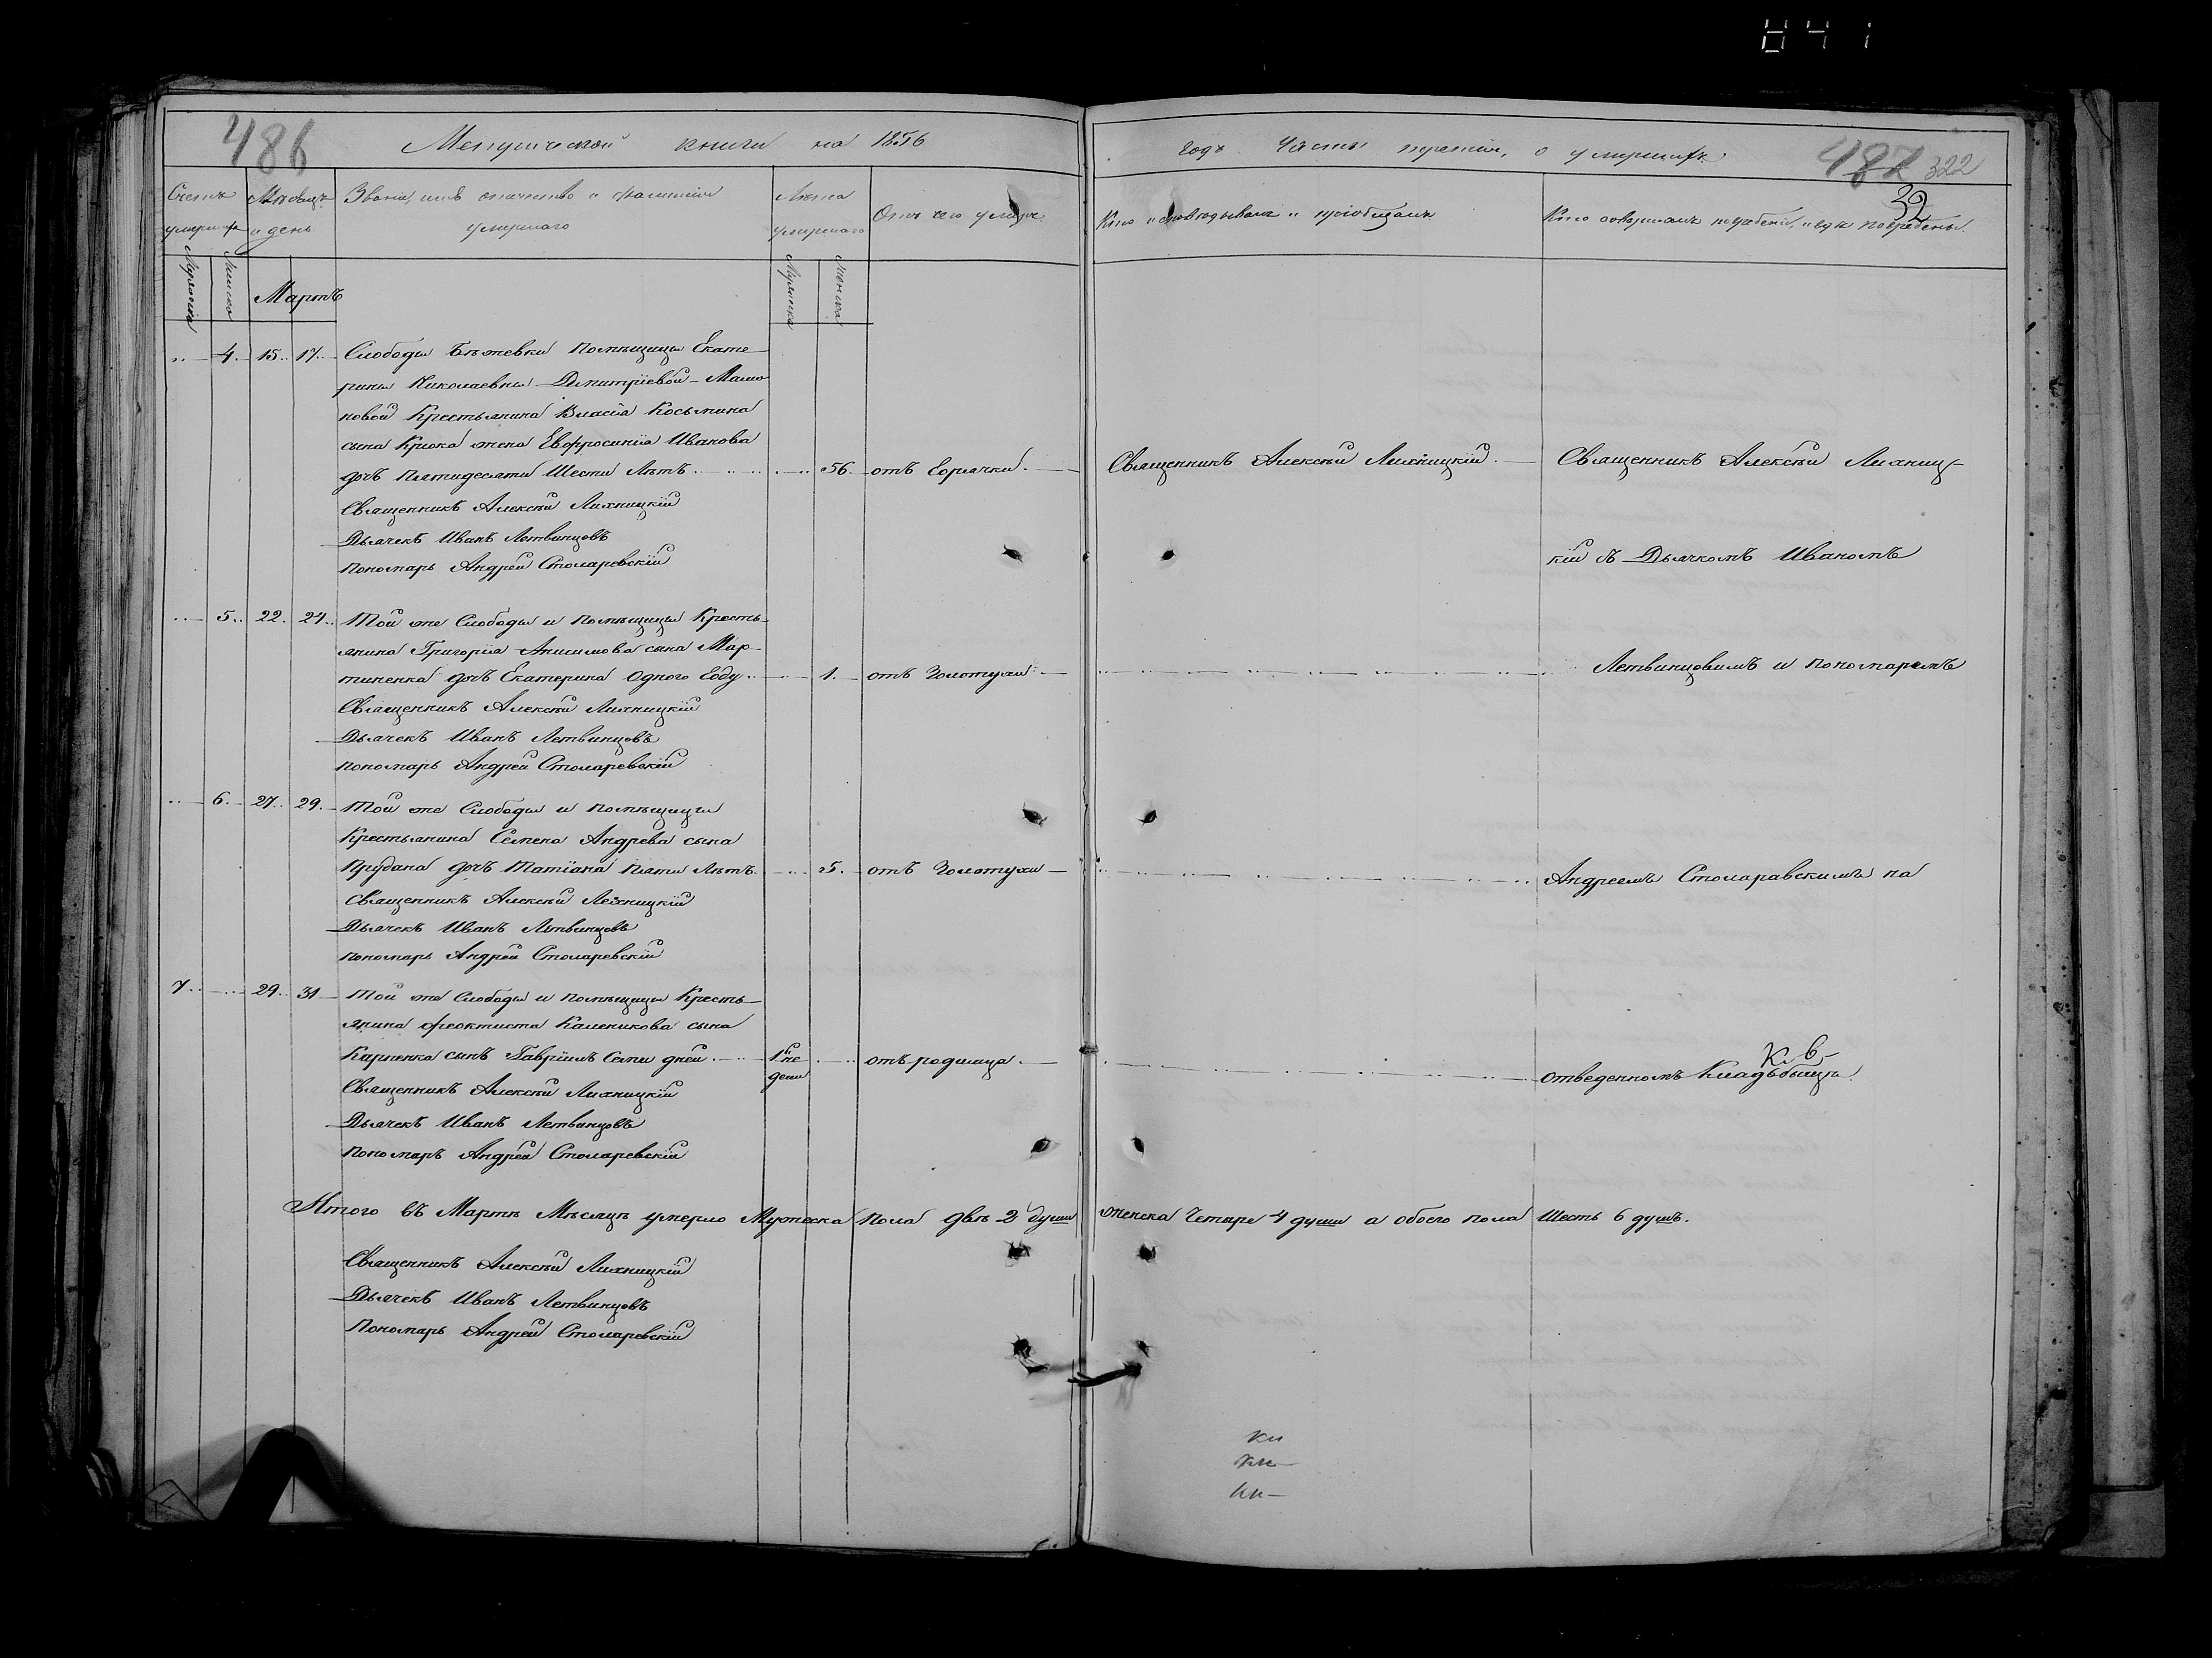 841
486
Метрической книги на 1856
годъ Часть третія, о умершихъ
487 322
32
Счетъ умершихъ
Мѣсяцъ и день
Званіе, имя отчество и фамилія умершаго
Лѣта умершаго
Отъ чего умеръ
Кто исповѣдывалъ и пріобщалъ
Кто совершалъ погребеніе, и гдѣ погребены.
Мужеска
Женска
Мартъ
Мужеска
Женска
4. 15. 17. Слободы Бѣжевки Помѣщицы Екате
рины Николаевны Дмитріевой-Мамо
новой Крестьянина Власія Косьмина
сына Крюка жена Евфросинія Иванова
дочъ Пятидесяти Шести Лѣтъ. 56. отъ Горячки. Священникъ Алексѣй Лихницкій. Священникъ Алексѣй Лихниц-
Священникъ Алексѣй Лихницкій
Дьячекъ Иванъ Летвинцовъ
кій съ Дьячкомъ Иваномъ
Пономарь Андрей Столаревскій
5. 22. 24. Той же Слободы и помѣщицы Кресть-
янина Григорія Анисимова сына Мар-
тиненка дочъ Екатерина Одного Году. 1. отъ Золотухи Летвинцовимъ и пономаремъ
Священникъ Алексѣй Лихницкій
Дьячекъ Иванъ Летвинцовъ
пономарь Андрей Столаревскій
6. 27. 29. Той же Слободы и помѣщицы
Крестьянина Семена Андрева сына
Прудана дочъ Татіана пяти Лѣтъ. 5. отъ Золотухи Андреемъ Столаравскимъ на
Священникъ Алексѣй Лехницкій
Дьячекъ Иванъ Летвинцовъ
пономарь Андрей Столаревскій
7. 29. 31 Той же Слободы и помѣщицы Кресть-
янина Феоктиста Каленикова сына
Карпенка сынъ Гавріилъ Семи дней. 7 дней отъ родимца. отведенномъ Кладьбыщѣ.
Священникъ Алексѣй Лихницкій
Дьячекъ Иванъ Летвинцовъ
Пономаръ Андрей Столаревскій
Итого въ Мартѣ Мѣсяцѣ умерло Мужеска пола двѣ 2 души женска Четыре 4 души а обоего пола Шесть 6 душъ.
Священникъ Алексѣй Лихницкій
Дьячекъ Иванъ Летвинцовъ
Пономарь Андрей Столаревскій